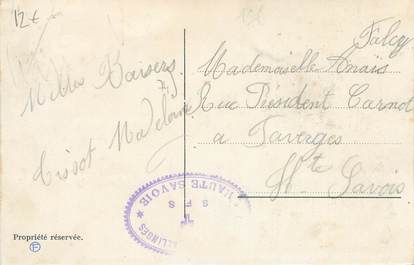 12€
Milles Baisers
Tissot Madeleine
Falcy
Mademoiselle Anaïs
Rue Président Carnot
a Faverges
Hte Savoie
HAUTE SAVOIE
S F S
Propriété réservée.